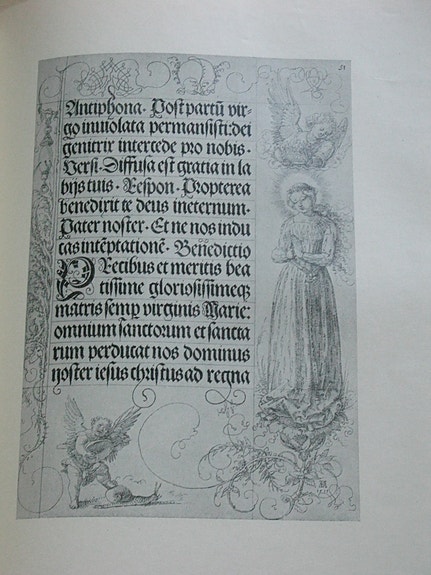 51
Antiphona. Post partū vir-
go inuiolata permansisti: dei
genitrix intercede pro nobis.
Versi. Diffusa est gratia in la
bijs tuis. Respon. Propterea
benedixit te deus ineternum.
Pater noster. Et ne nos indu
cas intēptationē. Benedictio
PRecibus et meritis bea
tissime gloriosissimeqz
matris semp virginis Marie:
omnium sanctorum et sancta
rum perducat nos dominus
noster iesus christus ad regna